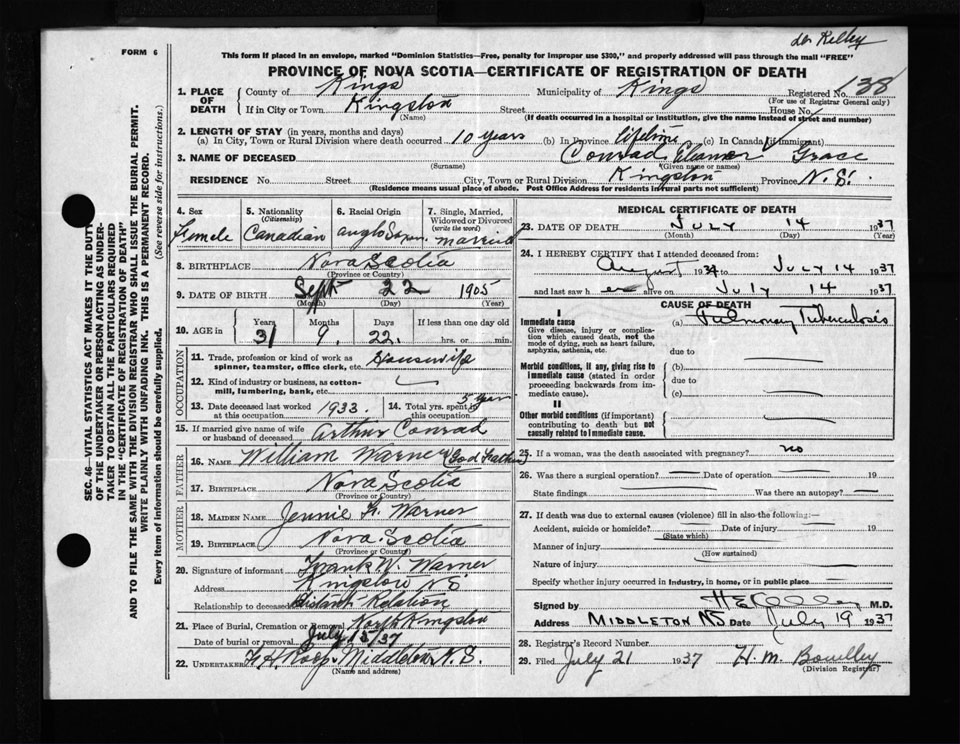 dr Kelley
FORM 6
This form if placed in an envelope, marked "Dominion Statistics—Free, penalty for improper use $300," and properly addressed will pass through the mail "FREE"
PROVINCE OF NOVA SCOTIA—CERTIFICATE OF REGISTRATION OF DEATH
1. PLACE OF DEATH County of Kings Municipality of Kings Registered No. 138
(For use of Registrar General only)
If in City or Town Kingston Street House No.
(Name) (If death occurred in a hospital or institution, give the name instead of street and number)
2. LENGTH OF STAY (in years, months and days)
(a) In City, Town or Rural Division where death occurred 10 years (b) In Province lifetime (c) In Canada (if immigrant)
3. NAME OF DECEASED Conrad Eleanor Grace
(Surname) (Given name or names)
RESIDENCE No. Street City, Town or Rural Division Kingston Province N.S.
(Residence means usual place of abode. Post Office Address for residents in rural parts not sufficient)
4. Sex Female
5. Nationality (Citizenship) Canadian
6. Racial Origin Anglo Saxon
7. Single, Married, Widowed or Divorced (write the word) Married
8. BIRTHPLACE Nova Scotia
(Province or Country)
9. DATE OF BIRTH Sept 22 1905
(Month) (Day) (Year)
10. AGE in Years 31 Months 9 Days 22 If less than one day old hrs. or min.
OCCUPATION
11. Trade, profession or kind of work as spinner, teamster, office clerk, etc. Housewife
12. Kind of industry or business, as cotton-mill, lumbering, bank, etc.
13. Date deceased last worked at this occupation 1933.
14. Total yrs. spent in this occupation 5 years
15. If married give name of wife or husband of deceased Arthur Conrad
FATHER
16. NAME William Warner (God Father)
17. BIRTHPLACE Nova Scotia
(Province or Country)
MOTHER
18. MAIDEN NAME Jennie Warner
19. BIRTHPLACE Nova Scotia
(Province or Country)
20. Signature of informant Frank W. Warner
Address Kingston N.S.
Relationship to deceased Distant Relation
21. Place of Burial, Cremation or Removal North Kingston
Date of burial or removal July 15/37
22. UNDERTAKER Middleton, N.S.
(Name and address)
MEDICAL CERTIFICATE OF DEATH
23. DATE OF DEATH July 14 1937
(Month) (Day) (Year)
24. I HEREBY CERTIFY that I attended deceased from:
August 1934 to July 14 1937
and last saw her alive on July 14 1937
CAUSE OF DEATH
I
Immediate cause (a) Pulmonary Tuberculosis
Give disease, injury or complication which caused death, not the mode of dying, such as heart failure, asphyxia, asthenia, etc.
due to
Morbid conditions, if any, giving rise to immediate cause (stated in order proceeding backwards from immediate cause). (b)
due to
(c)
II
Other morbid conditions (if important) contributing to death but not causally related to immediate cause.
25. If a woman, was the death associated with pregnancy? no
26. Was there a surgical operation? Date of operation 19
State findings Was there an autopsy?
27. If death was due to external causes (violence) fill in also the following:—
Accident, suicide or homicide? Date of injury 19
(State which)
Manner of injury
(How sustained)
Nature of injury
Specify whether injury occurred in industry, in home, or in public place
Signed by M.D.
Address MIDDLETON NS Date July 19 1937
28. Registrar's Record Number
29. Filed July 21 1937 H. M.
(Division Registrar)
SEC. 46—VITAL STATISTICS ACT MAKES IT THE DUTY
OF THE UNDERTAKER OR PERSON ACTING AS UNDER-
TAKER TO OBTAIN ALL THE PARTICULARS REQUIRED
IN THE "CERTIFICATE OF REGISTRATION OF DEATH"
AND TO FILE THE SAME WITH THE DIVISION REGISTRAR WHO SHALL ISSUE THE BURIAL PERMIT.
WRITE PLAINLY WITH UNFADING INK. THIS IS A PERMANENT RECORD.
Every item of information should be carefully supplied. (See reverse side for instructions.)